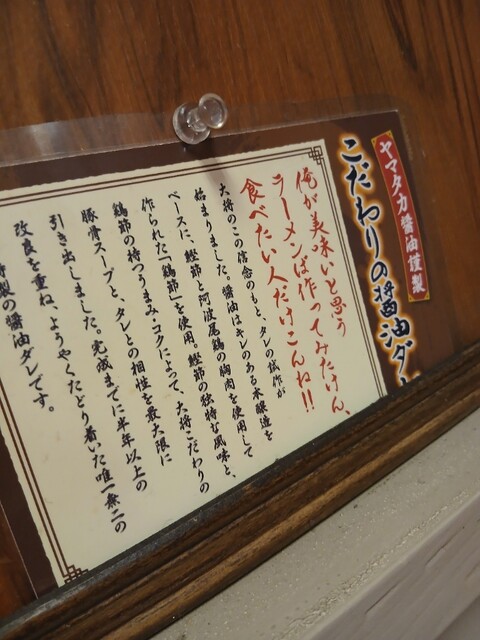 ヤマタカ醤油謹製
こだわりの醤油ダレ
俺が美味いと思う
ラーメンば作ってみたけん、
食べたい人だけこんね!!
大将のこの信念のもと、タレの試作が
始まりました。醤油はキレのある本醸造を
ベースに、鰹節と阿波尾鶏の胸肉を使用して
作られた「鶏節」を使用。鰹節の独特な風味と、
鶏節の持つうまみ・コクによって、大将こだわりの
豚骨スープと、タレとの相性を最大限に
引き出しました。完成までに半年以上の
改良を重ね、ようやくたどり着いた唯一無二の
特製の醤油ダレです。